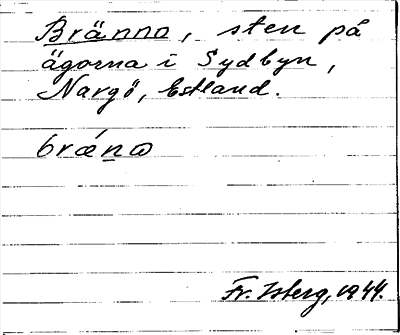 Bränno, sten på
ägorna i Sydbyn,
Nargö, Estland.
bränω
Fr. Isberg, 1944.